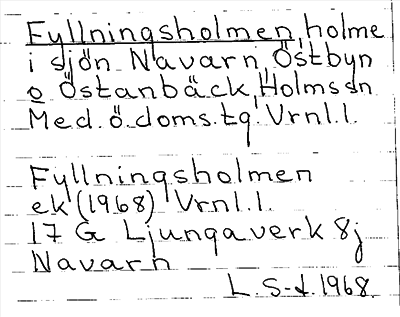 Fyllningsholmen, holme
i sjön Navarn, Östbyn
o Östanbäck, Holms sn
Med. ö. doms. tg. Vrnl.l.
Fyllningsholmen
ek (1968) Vrnl.l.
17 G Ljungaverk 8j
Navarn
L S-d. 1968.